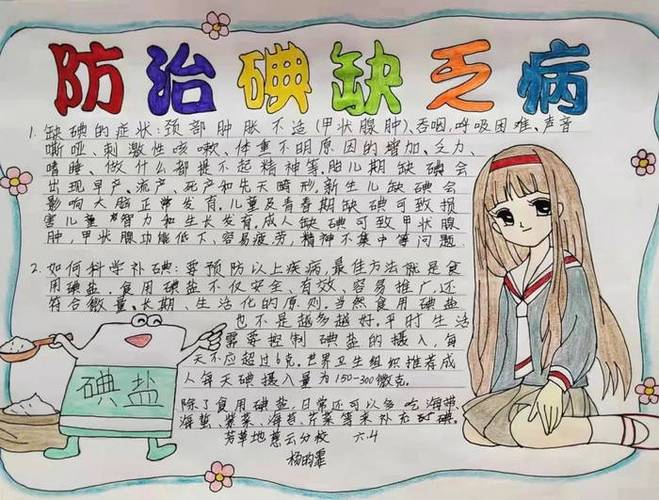 防治碘缺乏病
1. 缺碘的症状:颈部肿胀不适(甲状腺肿)、吞咽、呼吸困难、声音
嘶哑、刺激性咳嗽、体重不明原因的增加、乏力、
嗜睡、做什么都提不起精神等。胎儿期缺碘会
出现早产、流产、死产和先天畸形,新生儿缺碘会
影响大脑正常发育。儿童及青春期缺碘可致损
害儿童智力和生长发育。成人缺碘可致甲状腺
肿,甲状腺功能低下、容易疲劳,精神不集中等问题
2. 如何科学补碘:要预防以上疾病,最佳方法就是食
用碘盐,食用碘盐不仅安全、有效、容易推广,还
符合微量、长期、生活化的原则。当然食用碘盐
也不是越多越好,平时生活
需要控制碘盐的摄入,每
天不应超过6克。世界卫生组织推荐成
人每天碘摄入量为150-300微克。
除了食用碘盐,日常还可以多吃海带、
海蜇、紫菜、海苔、芹菜等来补充碘。
芳草地慈云分校 六.4
杨昀霏
碘盐